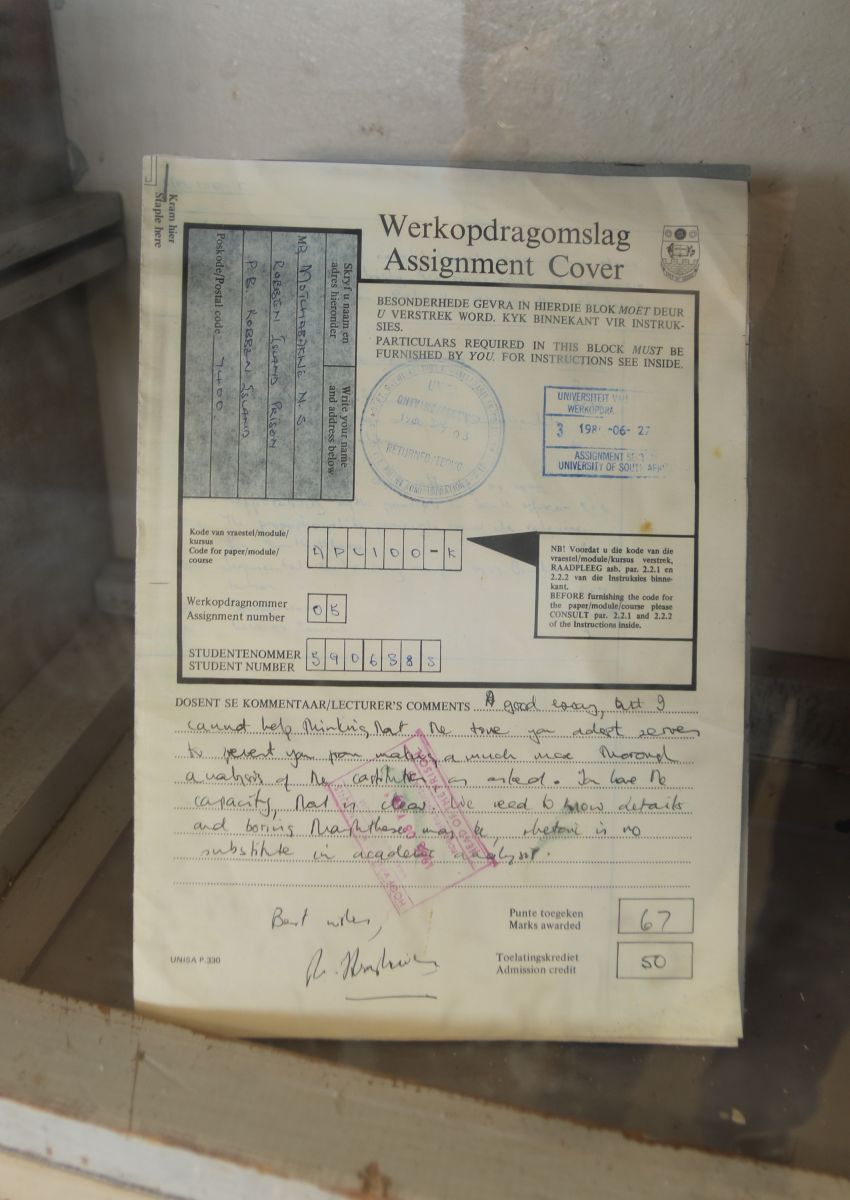 Kram hier
Staple here
Werkopdragomslag
Assignment Cover
Skryf u naam en
adres hieronder
Write your name
and address below
MR MOTCHABAKWE N. S.
ROBBEN ISLAND PRISON
P.B. ROBBEN ISLAND
Poskode/Postal code 7400
BESONDERHEDE GEVRA IN HIERDIE BLOK MOET DEUR
U VERSTREK WORD. KYK BINNEKANT VIR INSTRUK-
SIES.
PARTICULARS REQUIRED IN THIS BLOCK MUST BE
FURNISHED BY YOU. FOR INSTRUCTIONS SEE INSIDE.
UNIVERSITEIT
WERKOPDRA
3 198 -06- 27
ASSIGNMENT
UNIVERSITY OF SOUTH AFRI
Kode van vraestel/module/
kursus
Code for paper/module/
course
APL100-K
NB! Voordat u die kode van die
vraestel/module/kursus verstrek,
RAADPLEEG asb. par. 2.2.1 en
2.2.2 van die Instruksies binne-
kant.
BEFORE furnishing the code for
the paper/module/course please
CONSULT par. 2.2.1 and 2.2.2
of the Instructions inside.
Werkopdragnommer
Assignment number
05
STUDENTENOMMER
STUDENT NUMBER
DOSENT SE KOMMENTAAR/LECTURER'S COMMENTS A good essay, but I
cannot help thinking that the tone you adopt serves
to prevent you from making a much more thorough
analysis of the constitution as asked. You have the
capacity, that is clear. We need to know details
and boring though these may be, rhetoric is no
substitute in academic analysis.
Best wishes,
Punte toegeken
Marks awarded
67
Toelatingskrediet
Admission credit
50
UNISA P.330